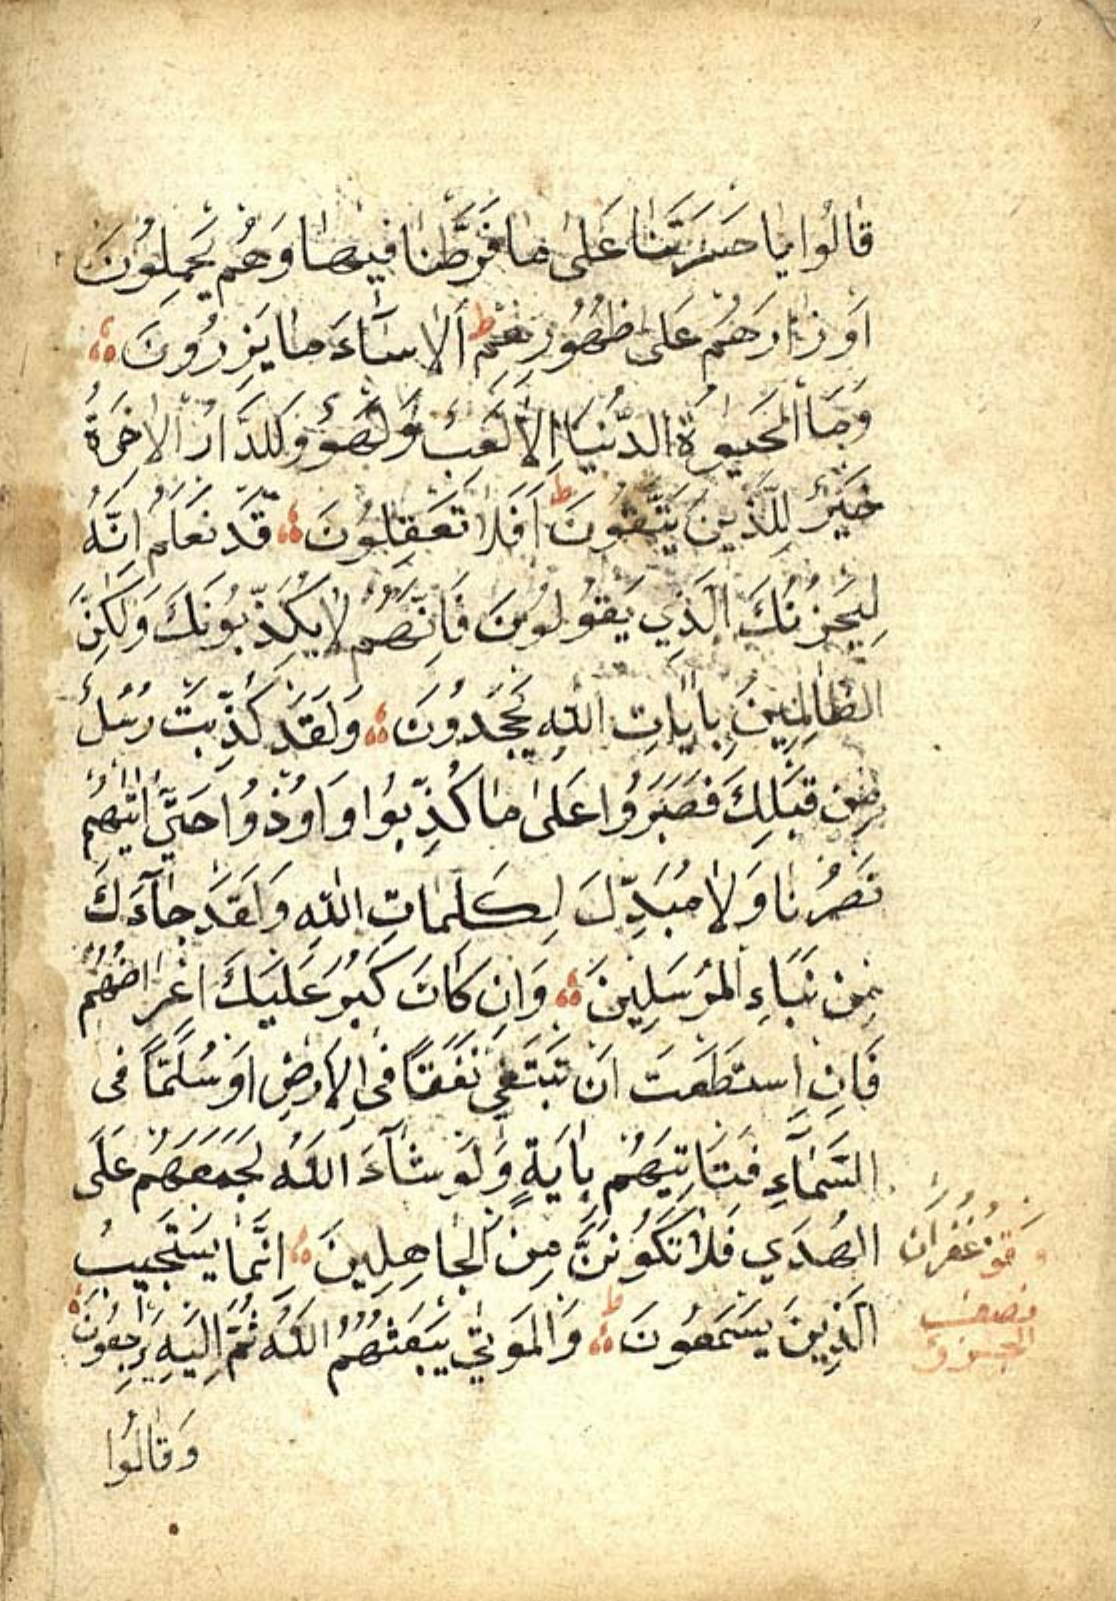 قَالُوا يَا حَسْرَتَنَا عَلَى مَا فَرَّطْنَا فِيهَا وَهُمْ يَحْمِلُونَ
اَوْزَارَهُمْ عَلَى ظُهُورِهِمْ ط اَلَا سَآءَ مَا يَزِرُونَ
وَمَا الْحَيٰوةُ الدُّنْيَا اِلَّا لَعِبٌ وَلَهْوٌ وَلَلدَّارُ الْاٰخِرَةُ
خَيْرٌ لِلَّذِينَ يَتَّقُونَ ط اَفَلَا تَعْقِلُونَ قَدْ نَعْلَمُ اِنَّهُ
لَيَحْزُنُكَ الَّذِي يَقُولُونَ فَاِنَّهُمْ لَا يُكَذِّبُونَكَ وَلَكِنَّ
الظَّالِمِينَ بِاٰيَاتِ اللهِ يَجْحَدُونَ وَلَقَدْ كُذِّبَتْ رُسُلٌ
مِنْ قَبْلِكَ فَصَبَرُوا عَلَى مَا كُذِّبُوا وَاُوذُوا حَتّٰى اَتٰيهُمْ
نَصْرُنَا وَلَا مُبَدِّلَ لِكَلِمَاتِ اللهِ وَلَقَدْ جَآءَكَ
مِنْ نَبَاءِ الْمُرْسَلِينَ وَاِنْ كَانَ كَبُرَ عَلَيْكَ اِعْرَاضُهُمْ
فَاِنِ اسْتَطَعْتَ اَنْ تَبْتَغِيَ نَفَقًا فِى الْاَرْضِ اَوْ سُلَّمًا فِى
السَّمَآءِ فَتَاْتِيَهُمْ بِاٰيَةٍ وَلَوْ شَآءَ اللهُ لَجَمَعَهُمْ عَلَى
الْهُدَي فَلَا تَكُونَنَّ مِنَ الْجَاهِلِينَ اِنَّمَا يَسْتَجِيبُ
الَّذِينَ يَسْمَعُونَ ط وَالْمَوْتٰي يَبْعَثُهُمُ اللهُ ثُمَّ اِلَيْهِ يُرْجَعُونَ
وَقَالُوا
وقف غفران
نصف
الجزؤ